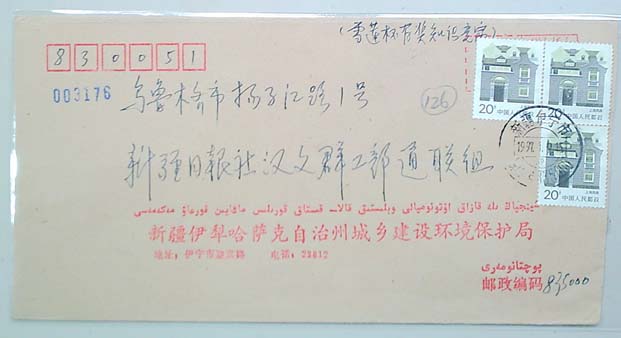 (雪莲杯有奖知识竞赛)
830051
003176
乌鲁木齐市扬子江路1号
126
新疆日报社汉文群工部通联组
20分 中国人民邮政
20分 中国人民邮政
20分 中国人民邮政
新疆伊犁哈萨克自治州城乡建设环境保护局
地址:伊宁市 电话:22812
پوچتانومەرى
邮政编码835000